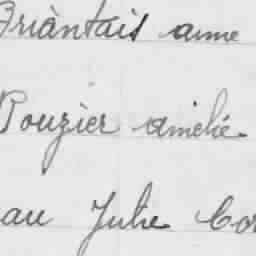 Briàntais anne
Rouzier amélie.
au Julie Cor